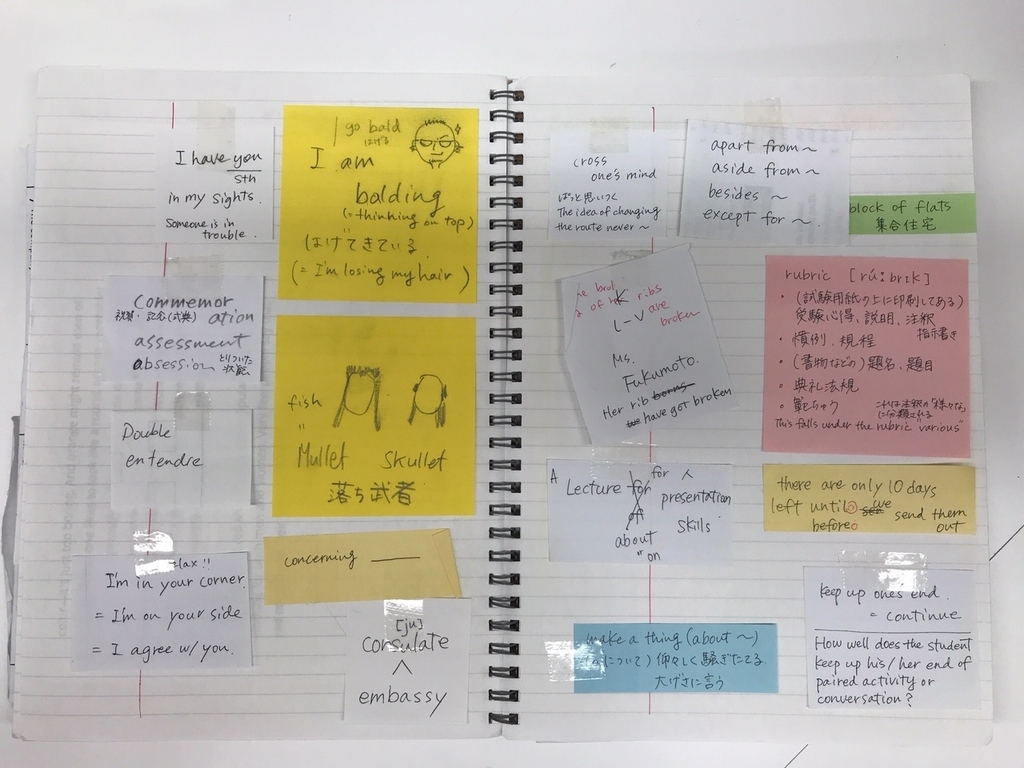 I have you
sth
in my sights.
Someone is in
trouble.
I go bald
はげる
I am
balding
(= thinning on top)
はげてきている
(= I'm losing my hair)
Commemor
ation
祝賀・記念(式典)
assessment
absession
とりついた
状態
fish
"
Mullet Skullet
落ち武者
Double
entendre
concerning
relax!!
I'm in your corner.
= I'm on your side
= I agree w/you.
[ju]
consulate
^
embassy
cross
one's mind
ぱっと思いつく
The idea of changing
the route never ~
apart from ~
aside from ~
besides ~
except for ~
block of flats
集合住宅
of her ribs
are
broken
L-V
Ms.
Fukumoto.
Her rib borns
have got broken
rubric [rúːbrɪk]
・(試験用紙の上に印刷してある)
受験心得、説明、注釈
指示書き
・慣例、規程
・(書物などの)題名、題目
・典礼法規
・範ちゅう
これは注釈の「様々な」
に分類される
This falls under the rubric "various"
A Lecture for for 人
of presentation
about skills
" on
there are only 10 days
left until we send them
before out
make a thing (about ~)
(について) 仰々しく騒ぎたてる
大げさに言う
keep up one's end.
= continue
How well does the student
keep up his/her end of
paired activity or
conversation?